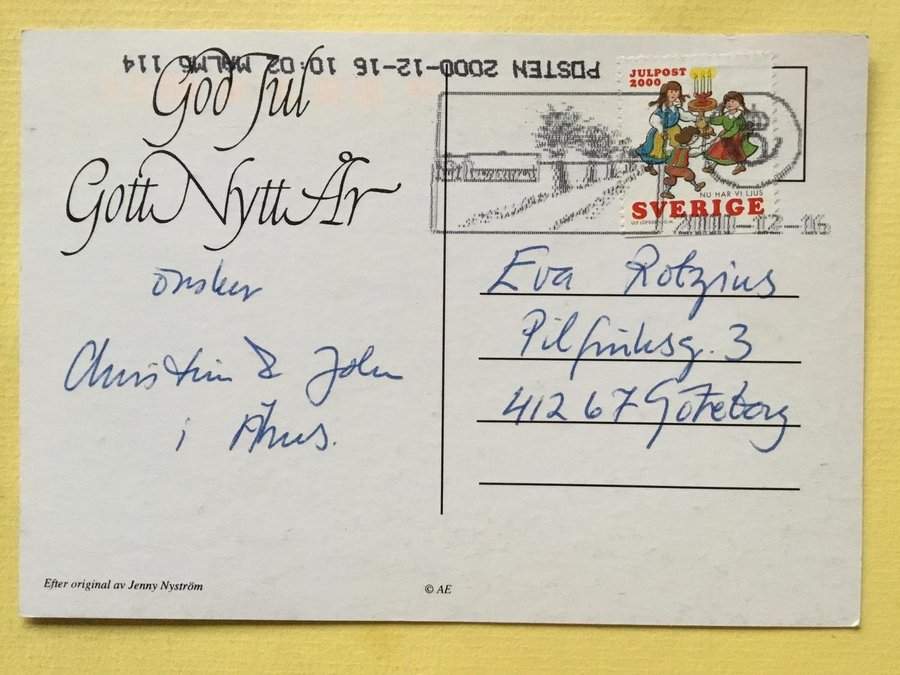 God Jul
Gott Nytt År
önsker
Christin & John
i Åhus.
Efter original av Jenny Nyström
© AE
POSTEN 2000-12-16 10:02 MALMÖ 114
JULPOST
2000
NU HAR VI LJUS
SVERIGE
2000-12-16
Eva Rotzius
Pilfinksg. 3
412 67 Göteborg